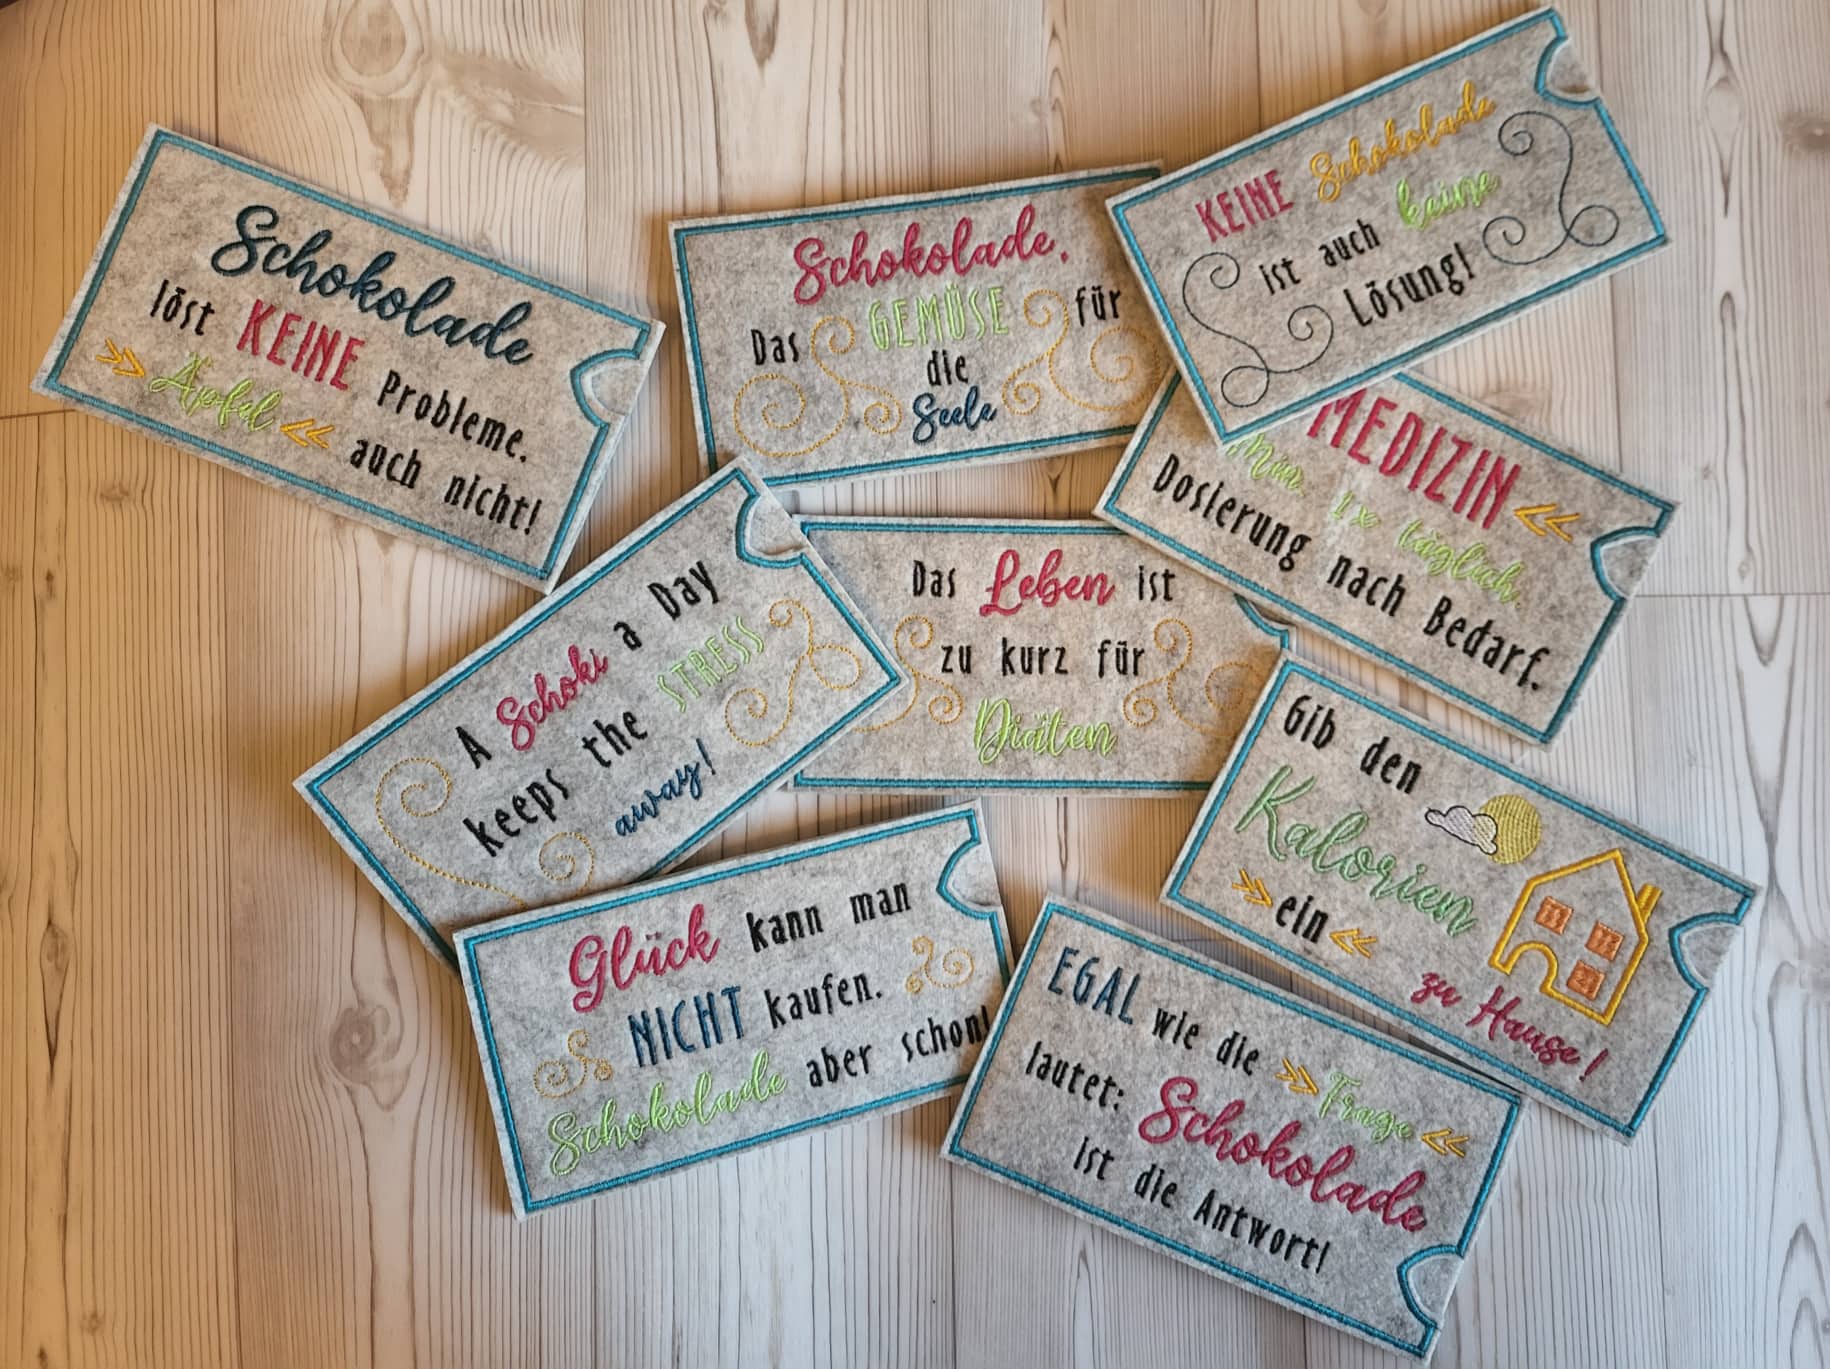 Schokolade
löst KEINE Probleme.
>> Äpfel << auch nicht!
Schokolade,
Das GEMÜSE für
die
Seele
KEINE Schokolade
ist auch keine
Lösung!
MEDIZIN <<
Min. 1x täglich.
Dosierung nach Bedarf.
A Schoki a Day
keeps the STRESS
away!
Das Leben ist
zu kurz für
Diäten
Gib den
Kalorien
>> ein <<
zu Hause!
Glück kann man
NICHT kaufen.
Schokolade aber schon!
EGAL wie die >> Frage <<
lautet: Schokolade
ist die Antwort!